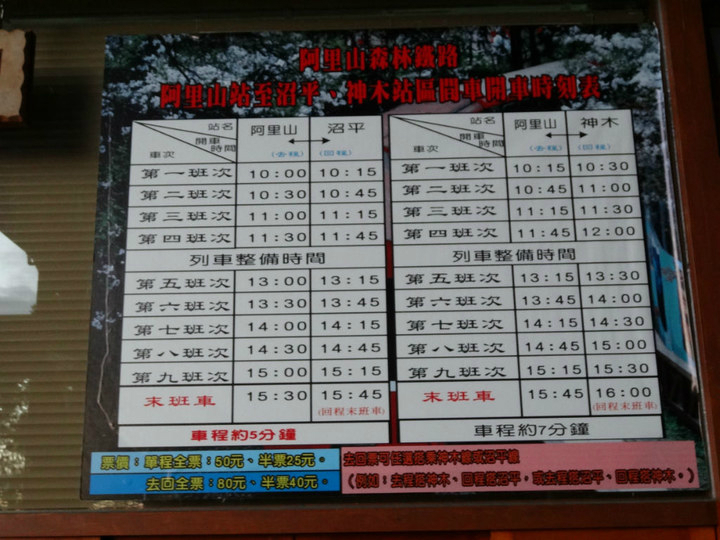 阿里山森林鐵路
阿里山站至沼平、神木站區間車開車時刻表
站名 開車時間 車次 阿里山 (去程) ↔ 沼平 (回程)
第一班次 10:00 10:15
第二班次 10:30 10:45
第三班次 11:00 11:15
第四班次 11:30 11:45
列車整備時間
第五班次 13:00 13:15
第六班次 13:30 13:45
第七班次 14:00 14:15
第八班次 14:30 14:45
第九班次 15:00 15:15
末班車 15:30 15:45
(回程末班車)
車程約5分鐘
站名 開車時間 車次 阿里山 (去程) ↔ 神木 (回程)
第一班次 10:15 10:30
第二班次 10:45 11:00
第三班次 11:15 11:30
第四班次 11:45 12:00
列車整備時間
第五班次 13:15 13:30
第六班次 13:45 14:00
第七班次 14:15 14:30
第八班次 14:45 15:00
第九班次 15:15 15:30
末班車 15:45 16:00
(回程末班車)
車程約7分鐘
票價：單程全票：50元、半票25元。
去回全票：80元、半票40元。
去回票可任選搭乘神木線或沼平線
(例如：去程搭神木、回程搭沼平，或去程搭沼平、回程搭神木。)